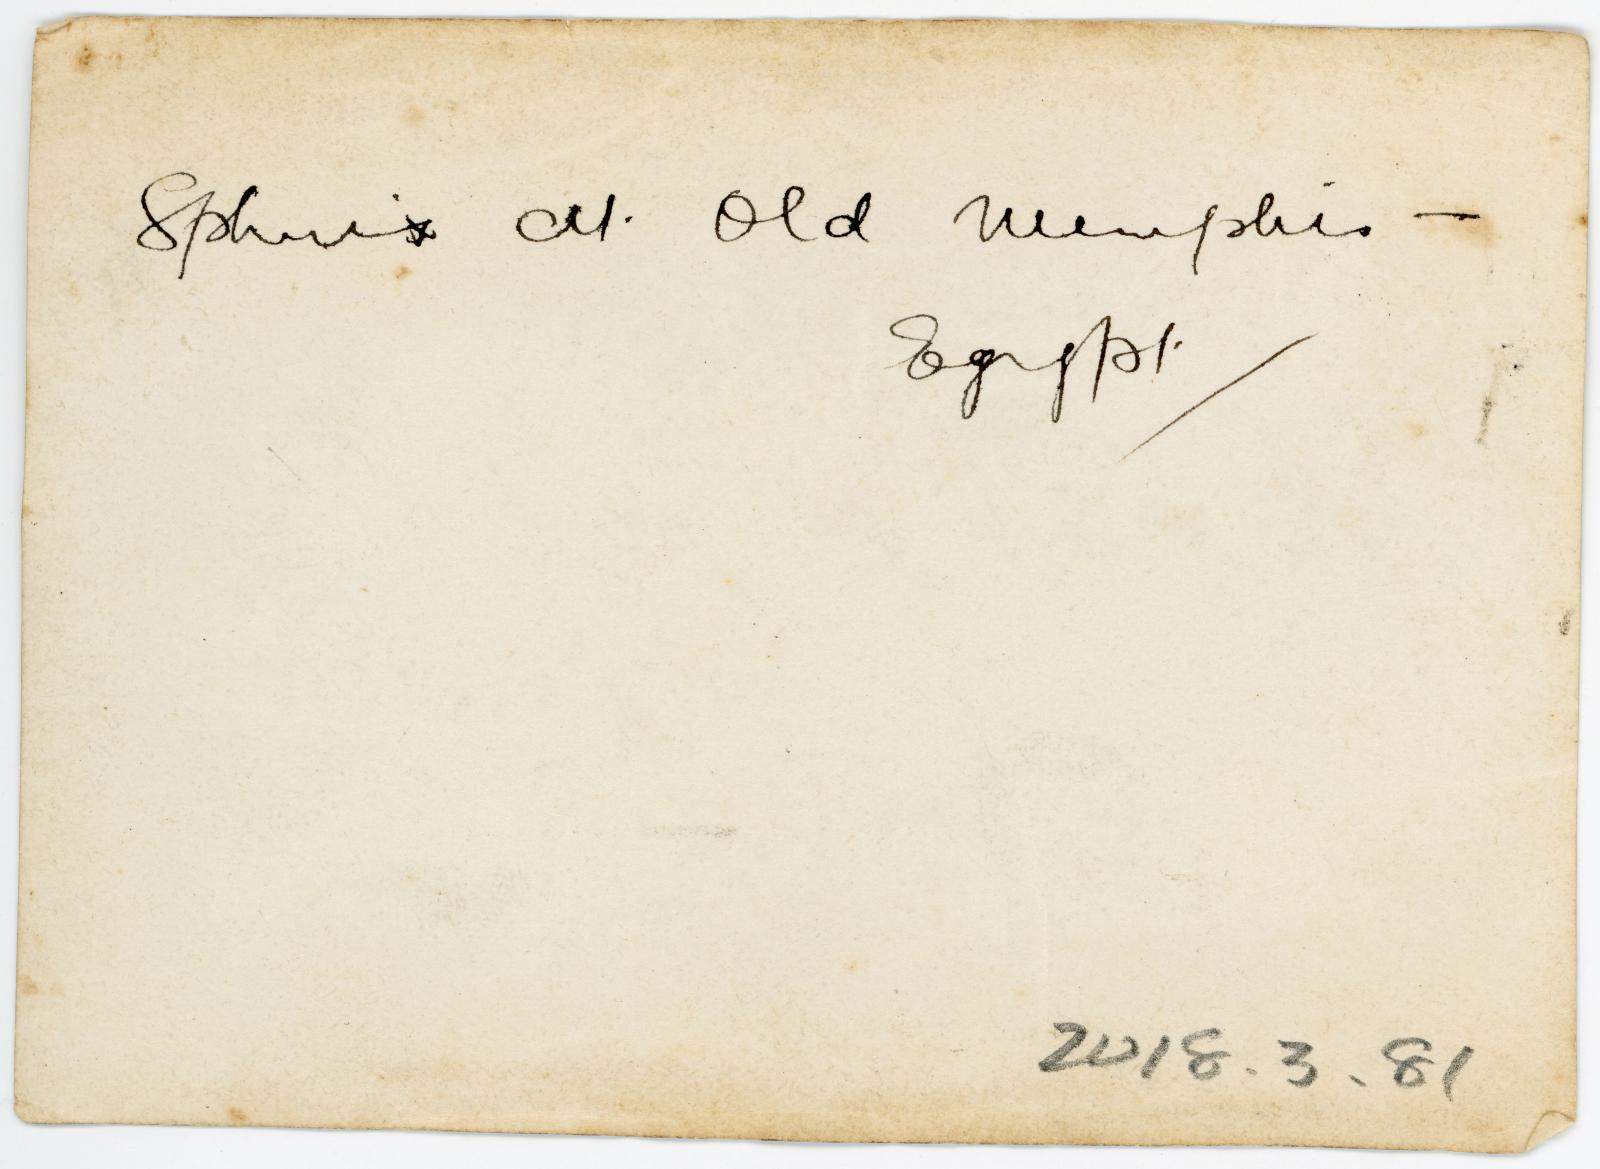 Sphinx at Old Memphis —
Egypt
2018.3.81